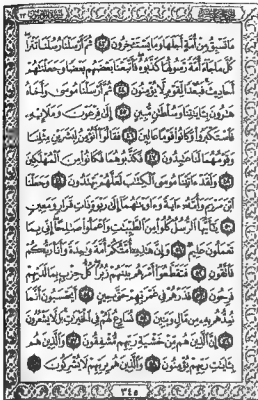 مَا تَسْبِقُ مِنْ أُمَّةٍ أَجَلَهَا وَمَا يَسْتَـْٔخِرُونَ ٤٣ ثُمَّ أَرْسَلْنَا رُسُلَنَا تَتْرَا
كُلَّ مَا جَآءَ أُمَّةً رَّسُولُهَا كَذَّبُوهُ فَأَتْبَعْنَا بَعْضَهُم بَعْضًا وَجَعَلْنَٰهُمْ
أَحَادِيثَ فَبُعْدًا لِّقَوْمٍ لَّا يُؤْمِنُونَ ٤٤ ثُمَّ أَرْسَلْنَا مُوسَىٰ وَأَخَاهُ
هَٰرُونَ بِـَٔايَٰتِنَا وَسُلْطَٰنٍ مُّبِينٍ ٤٥ إِلَىٰ فِرْعَوْنَ وَمَلَإِي۟هِۦ
فَٱسْتَكْبَرُوا۟ وَكَانُوا۟ قَوْمًا عَالِينَ ٤٦ فَقَالُوٓا۟ أَنُؤْمِنُ لِبَشَرَيْنِ مِثْلِنَا
وَقَوْمُهُمَا لَنَا عَٰبِدُونَ ٤٧ فَكَذَّبُوهُمَا فَكَانُوا۟ مِنَ ٱلْمُهْلَكِينَ
٤٨ وَلَقَدْ ءَاتَيْنَا مُوسَى ٱلْكِتَٰبَ لَعَلَّهُمْ يَهْتَدُونَ ٤٩ وَجَعَلْنَا
ٱبْنَ مَرْيَمَ وَأُمَّهُۥٓ ءَايَةً وَءَاوَيْنَٰهُمَآ إِلَىٰ رَبْوَةٍ ذَاتِ قَرَارٍ وَمَعِينٍ
٥٠ يَٰٓأَيُّهَا ٱلرُّسُلُ كُلُوا۟ مِنَ ٱلطَّيِّبَٰتِ وَٱعْمَلُوا۟ صَٰلِحًا إِنِّى بِمَا
تَعْمَلُونَ عَلِيمٌ ٥١ وَإِنَّ هَٰذِهِۦٓ أُمَّتُكُمْ أُمَّةً وَٰحِدَةً وَأَنَا۠ رَبُّكُمْ
فَٱتَّقُونِ ٥٢ فَتَقَطَّعُوٓا۟ أَمْرَهُم بَيْنَهُمْ زُبُرًا كُلُّ حِزْبٍۭ بِمَا لَدَيْهِمْ
فَرِحُونَ ٥٣ فَذَرْهُمْ فِى غَمْرَتِهِمْ حَتَّىٰ حِينٍ ٥٤ أَيَحْسَبُونَ أَنَّمَا
نُمِدُّهُم بِهِۦ مِن مَّالٍ وَبَنِينَ ٥٥ نُسَارِعُ لَهُمْ فِى ٱلْخَيْرَٰتِ بَل لَّا يَشْعُرُونَ
٥٦ إِنَّ ٱلَّذِينَ هُم مِّنْ خَشْيَةِ رَبِّهِم مُّشْفِقُونَ ٥٧ وَٱلَّذِينَ هُم
بِـَٔايَٰتِ رَبِّهِمْ يُؤْمِنُونَ ٥٨ وَٱلَّذِينَ هُم بِرَبِّهِمْ لَا يُشْرِكُونَ ٥٩
٣٤٥